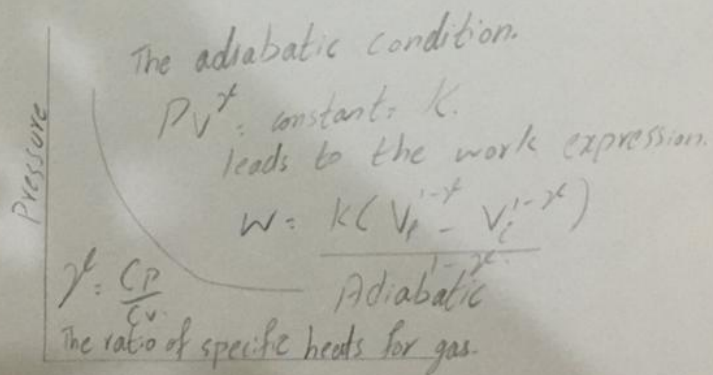 The adiabatic condition.
PV^γ = constant = K.
leads to the work expression.
W = K(V_f^1-γ - V_i^1-γ)
1-γ
Adiabatic
Pressure
γ = Cp
Cv
The ratio of specific heats for gas.